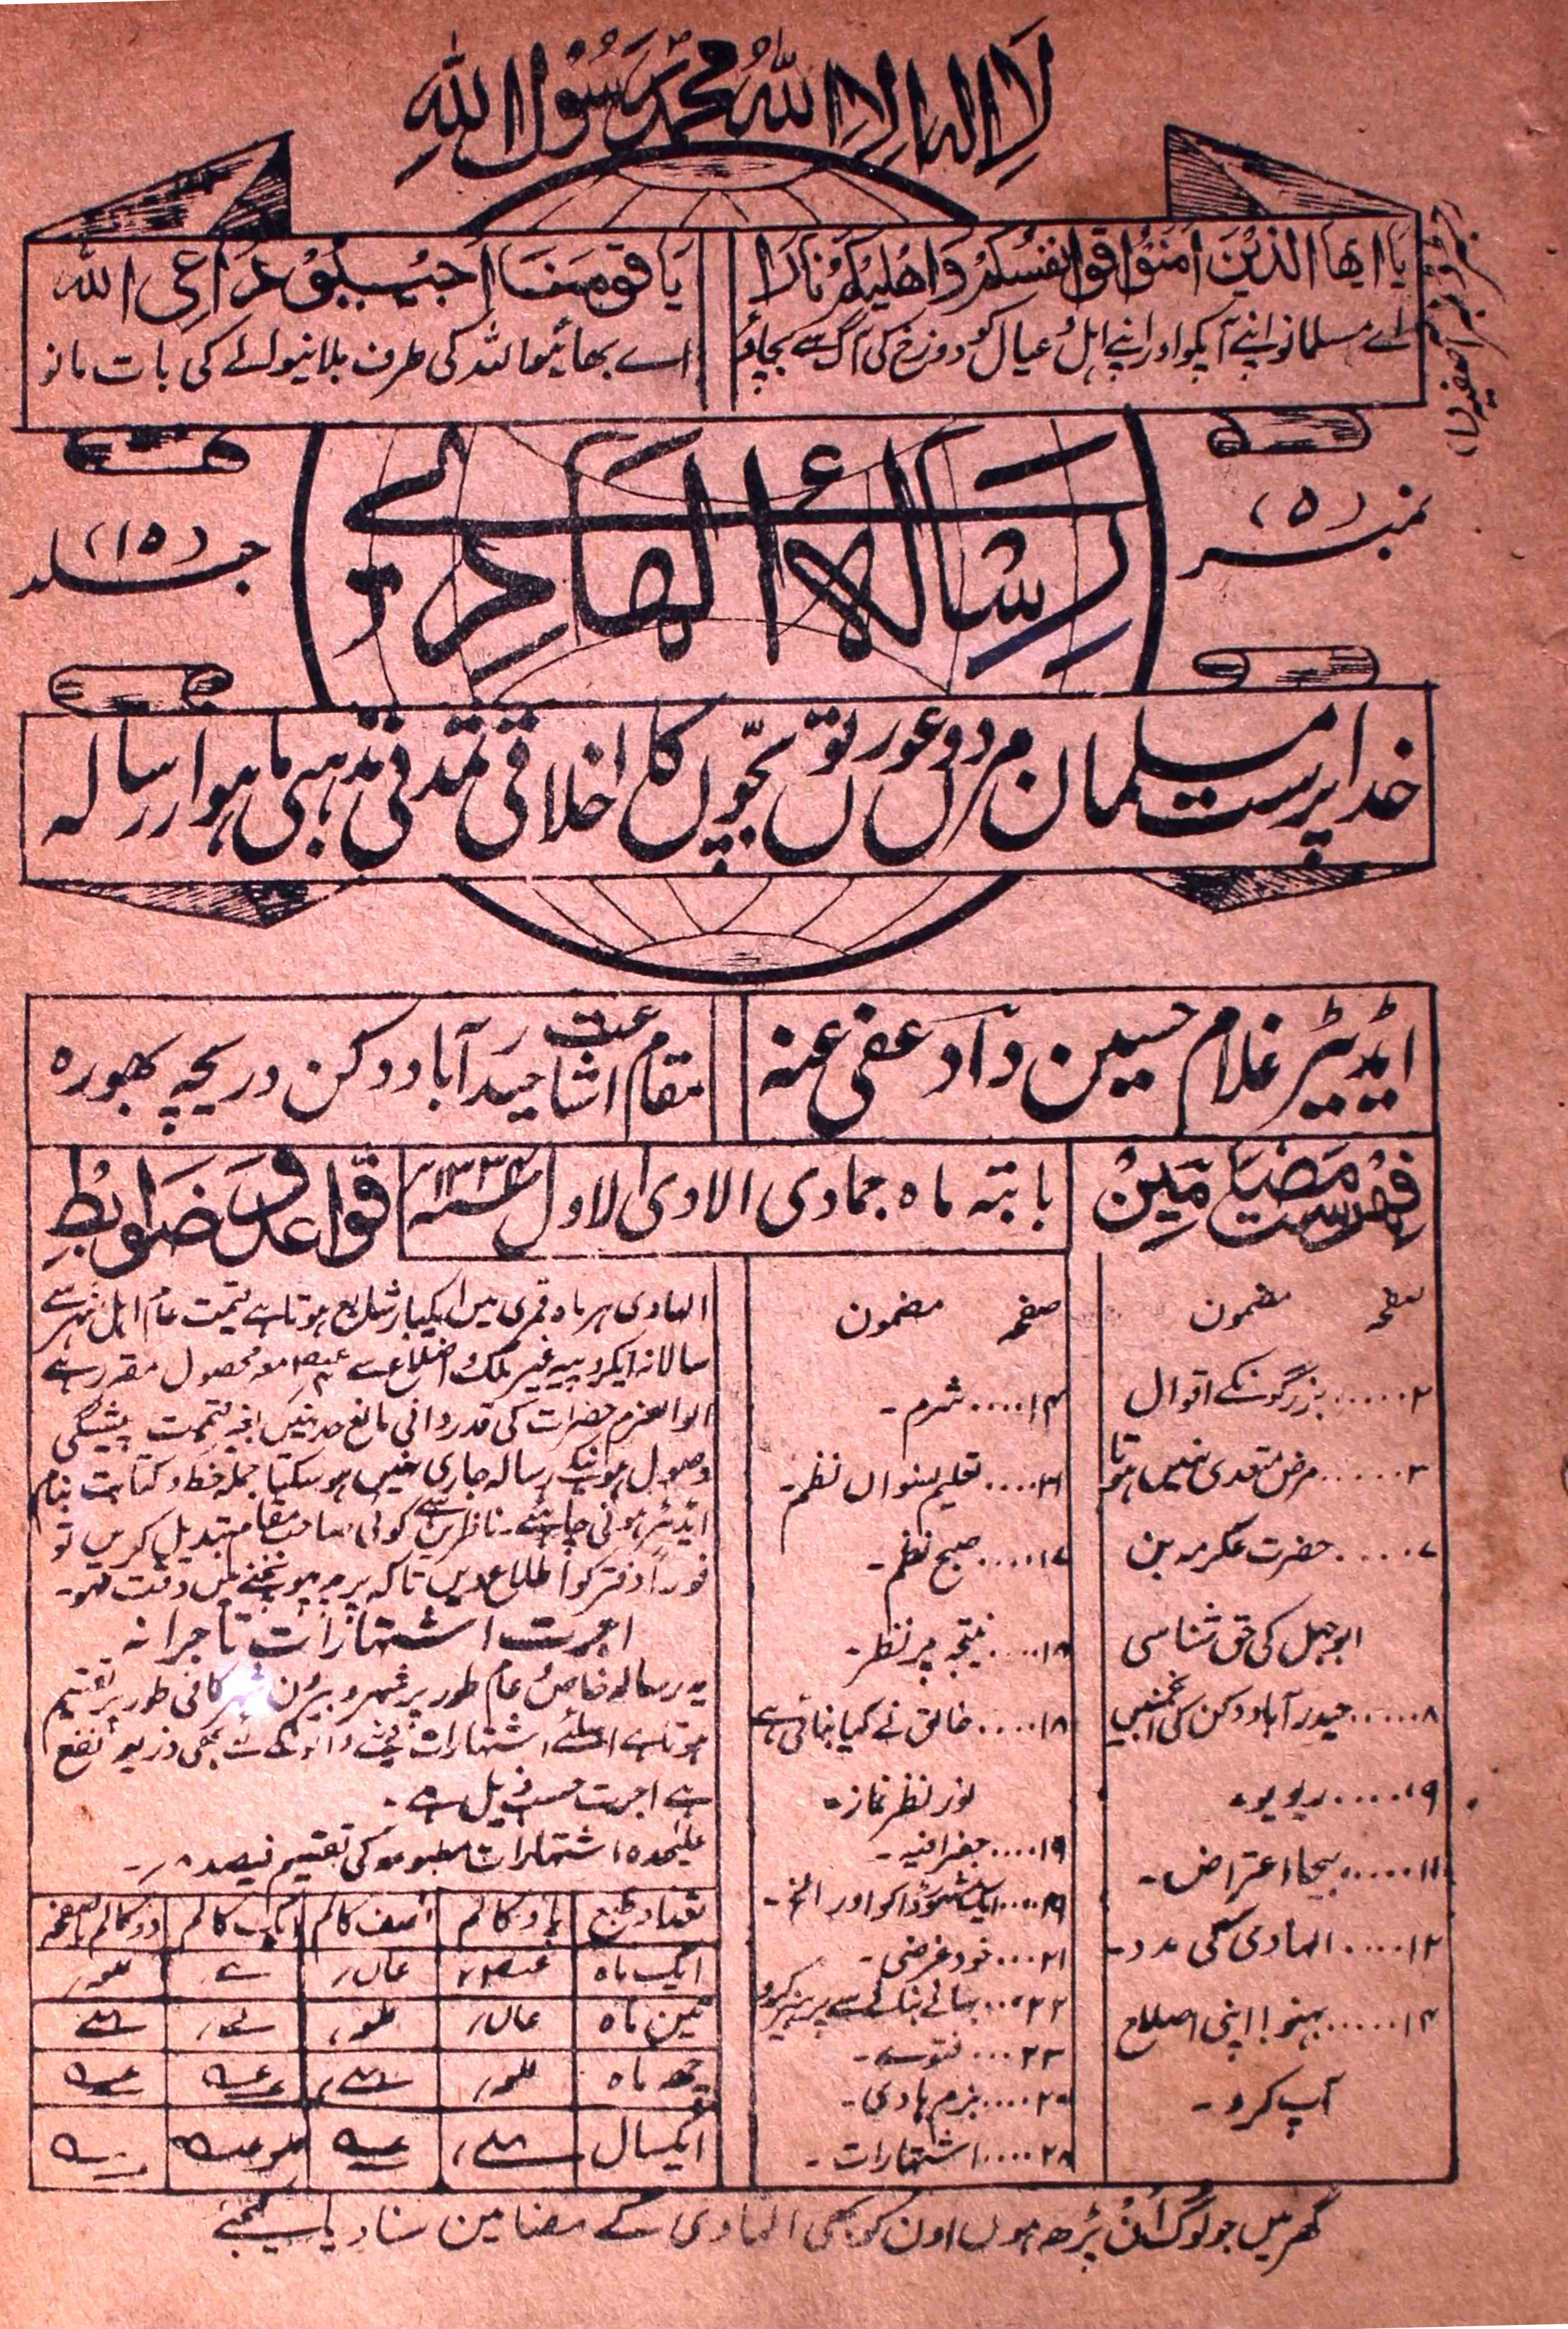 لَا اِلٰہَ اِلَّا اللہُ مُحَمَّدٌ رَّسُوْلُ اللہِ
یَا ایھا الذِیْنَ اٰمَنُوْا قُوْا انفُسَکُمْ وَاھْلِیْکُمْ نَارًا
اے مسلمانو اپنے آپکو اور اپنے اہل و عیال کو دوزخ کی آگ سے بچاؤ
یَا قَوْمَنَا اَجِیْبُوْا دَاعِیَ اللہ
اے بھائیو اللہ کی طرف بلانیوالے کی بات مانو
نمبر (۵)
رسالۂ الہادی
جلد (۱۵)
خدا پرست مسلمان مردوں عورتوں بچّوں کا اخلاقی تمدنی مذہبی ماہوار رسالہ
ایڈیٹر غلام حسین داؔد عفی عنہ
مقام اشاعت حیدرآباد دکن دریچہ بھورہ
فہرست مضامین
بابتہ ماہ جمادی الاول
قواعد و ضوابط
صفحہ مضمون
۲ ..... بزرگونکے اقوال
۳ ..... مرض متعدی نہیں ہوتا
۷ ..... حضرت عکرمہ بن
ابوجہل کی حق شناسی
۸ ..... حیدرآباد دکن کی انجمنیں
۹ ..... ریویو۔
۱۱ ..... بیجا اعتراض۔
۱۲ .... الہادی کی مدد۔
۱۴ ..... بہنو! اپنی اصلاح
آپ کرو۔
صفحہ مضمون
۱۴ .... شرم۔
۱۶ .... تعلیم نسواں نظم۔
۱۷ ..... صبح نظم۔
۱۸ .... نتیجہ پر نظر۔
۱۸ .... خالق نے کیا بنائی ہے
نور نظر نماز۔
۱۹ .... جغرافیہ۔
۱۹ .... ایک مشہور ڈاکو اور الخ۔
۲۱ ... خودغرضی۔
۲۲ ... بہانے بنانے سے پرہیز کرو
۲۳ ... فتوے۔
۲۵ .... بزم ہادی۔
۲۸ .... اشتہارات۔
الہادی ہر ماہ قمری میں ایکبار شایع ہوتا ہے قیمت عام اہل شہر سے
سالانہ ایکروپیہ غیر ملک و اضلاع سے معہ محصول مقرر ہے
اوالعزم حضرات کی قدردانی مانع حد نہیں بغیر قیمت پیشگی
وصول ہونیکے رسالہ جاری نہیں ہوسکتا جملہ خط و کتابت بنام
ایڈیٹر ہونی چاہئے۔ ناظرین سے کوئی صاحب مقام تبدیل کریں تو
فوراً دفتر کو اطلاع دیں تاکہ پرچہ پہونچنے میں دقت نہو۔
اجرت اشتہارات تاجرانہ
یہ رسالہ خاص و عام طور پر شہر و بیرون شہر کافی طور پر تقسیم
ہوتا ہے اسلئے اشتہارات دینے والوں کے لئے بھی ذریعہ نفع
ہے اجرت حسب ذیل ہے۔
علیٰحدہ اشتہارات مطبوعہ کی تقسیم فیصد ۸؍۔
تعداد طبع پاؤ کالم نصف کالم ایک کالم دو کالم یا صفحہ
ایک ماہ
تین ماہ
چھ ماہ
ایکسال
گھر میں جو لوگ اَن پڑھ ہوں اون کو بھی الہادی کے مضامین سنا دیا کیجئے